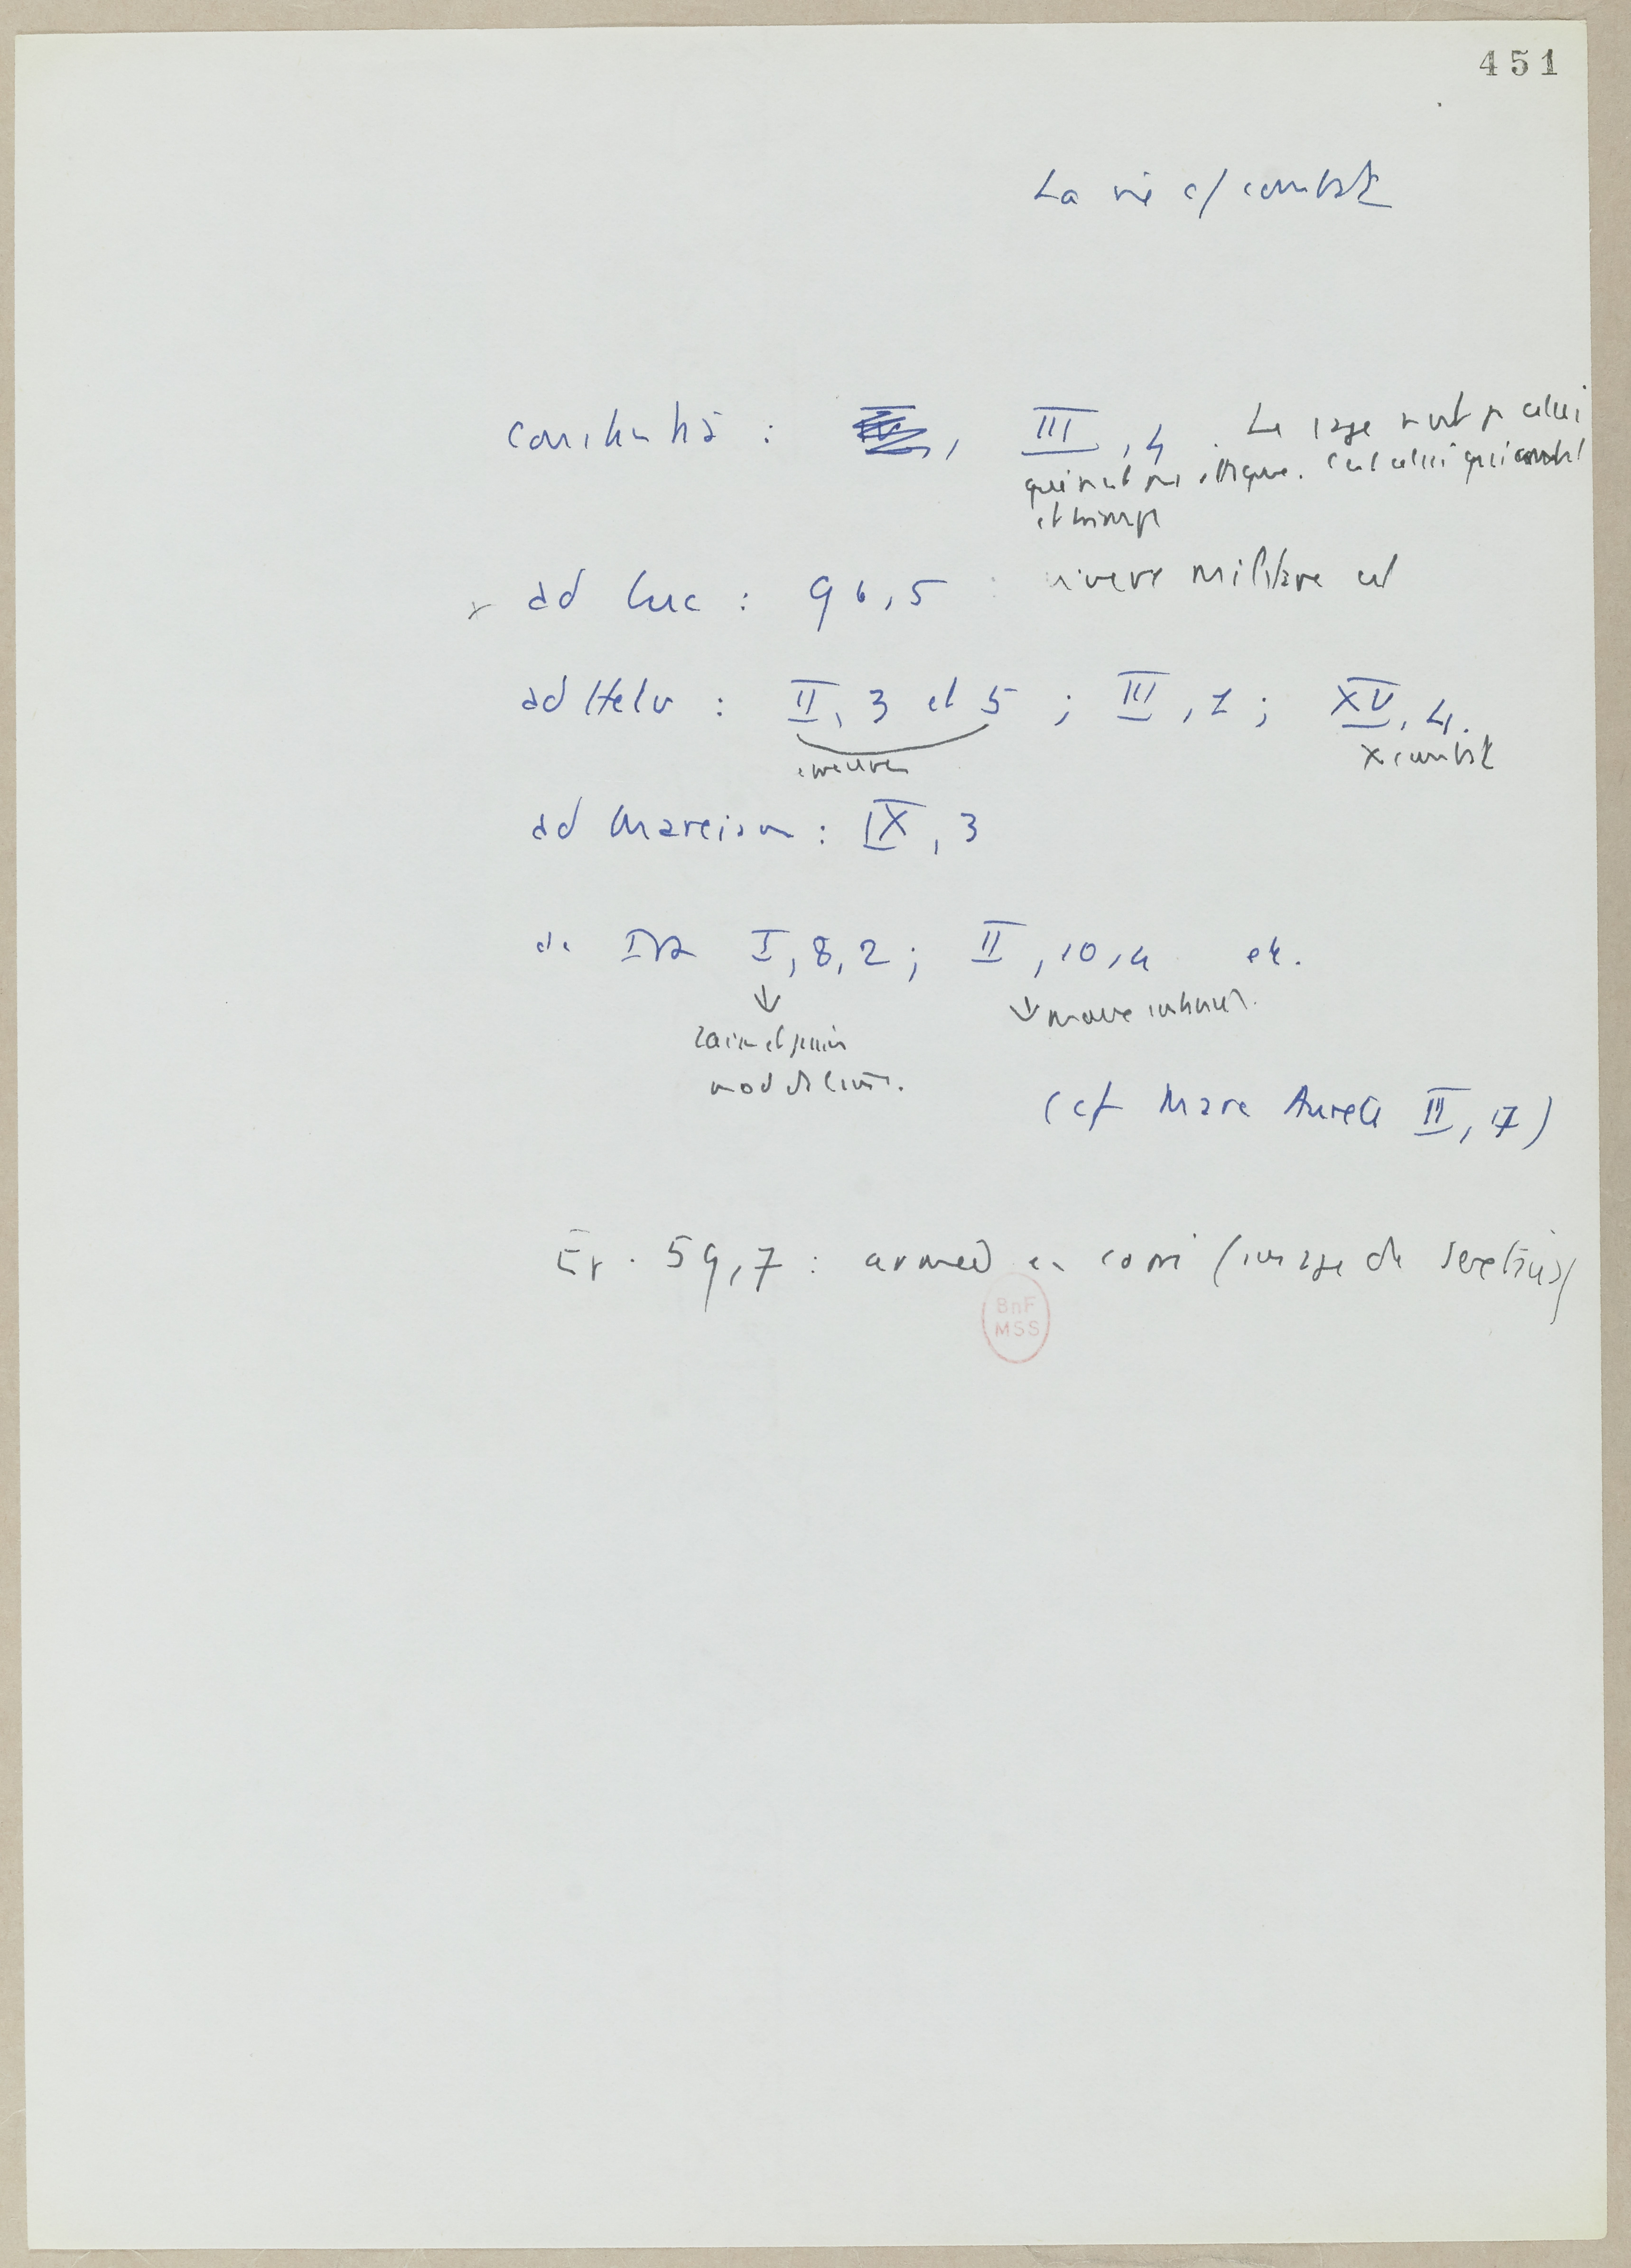 451
La vie c/ combat
Constantia : , III, 4. Le sage n'est p celui
qui n'est pas attaqué. C'est celui qui combat
et triomp
ad Luc : 96,5 : vivere militare est
ad Helv : II, 3 et 5 ; III, 1 ; XV, 4.
épreuve
x combat
ad Marciam : IX, 3
de Ira I, 8, 2 ; II, 10, 4 etc.
↓
↓
(cf Marc Aurèle II, 17)
Ep. 59,7 : armée en (image de Sextius)
BnF
MSS